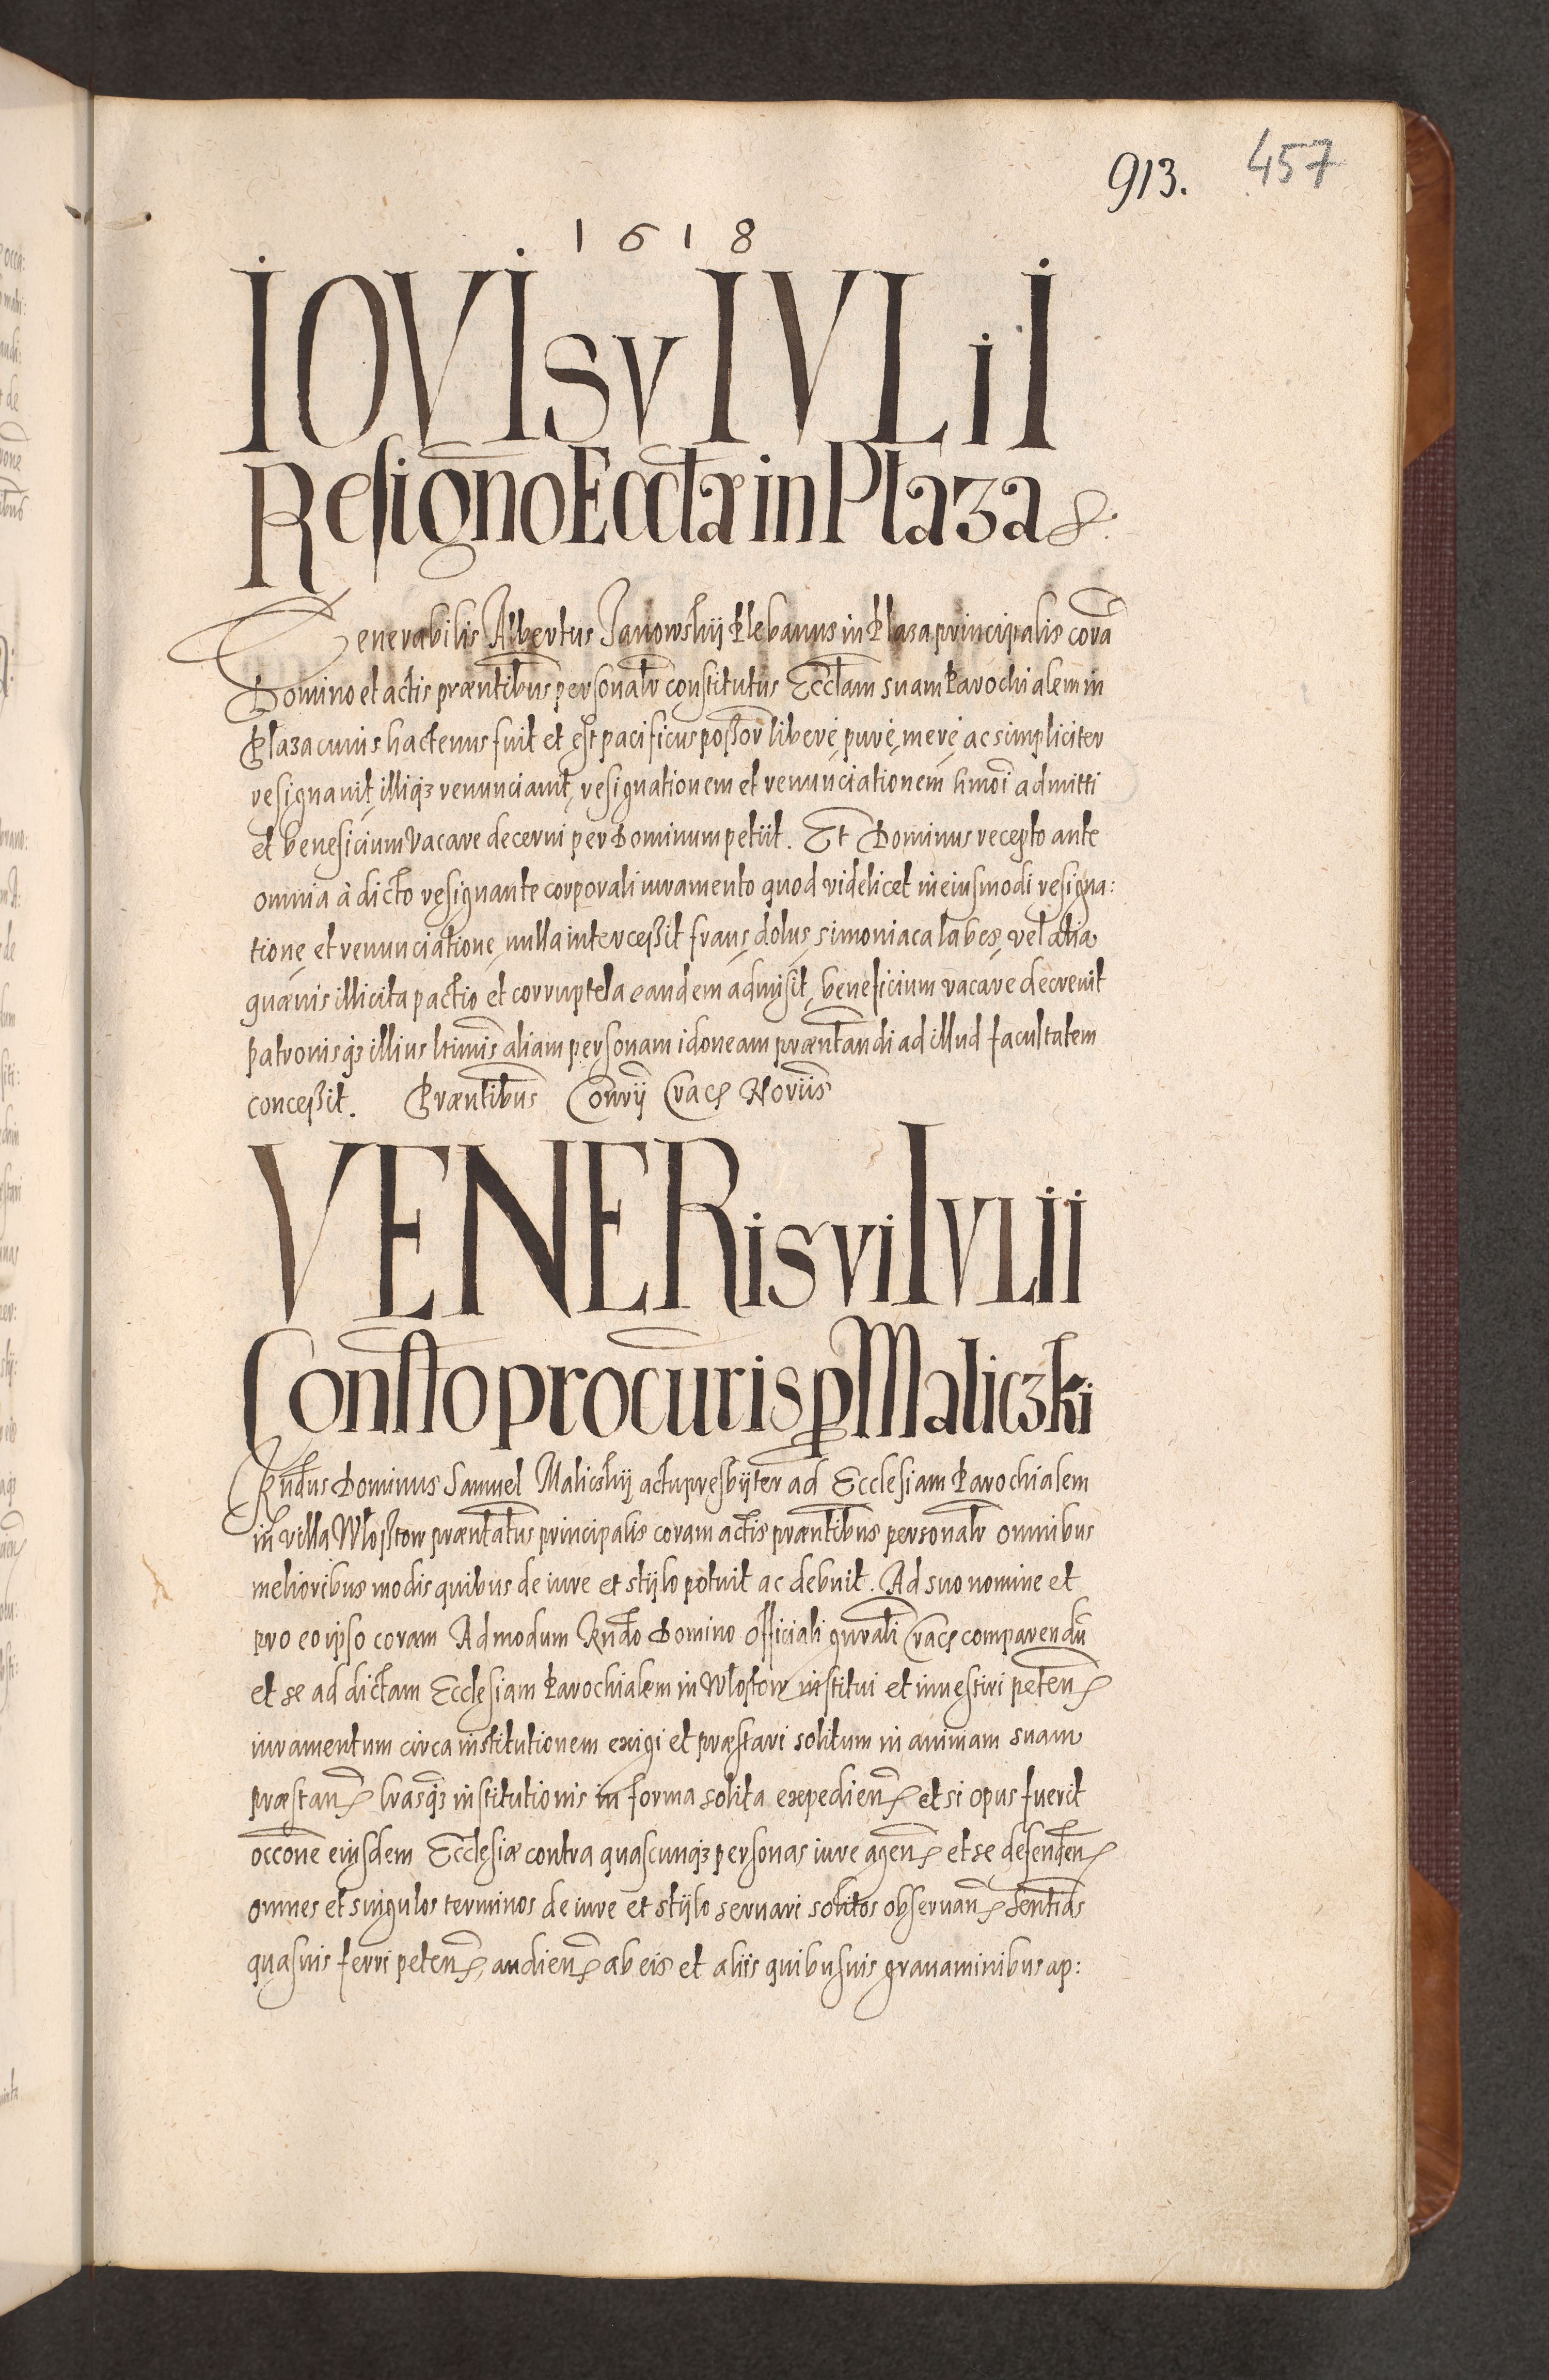 913. 457
1618
IOVIS V IVLII
Resigno Ecctæ in Płaza &.
Venerabilis Albertus Janowskij Plebanus in Plaza principalis corã
Domino et actis præntibus personalr constitutus Ecctam suam Parochialem in
Plaza cuius hactenus fuit et est pacificus possor liberè, purè, merè, ac simpliciter
resignauit, illiqз renunciauit, resignationem et renunciationem hmoi admitti
et beneficium vacare decerni per Dominum petiit. Et Dominus recepto ante
omnia à dicto resignante corporali iuramento quod videlicet in eiusmodi resigna:
tione, et renunciatione, nulla intercessit fraus, dolus, simoniaca labes, vel alia
quæuis illicita pactio et corruptela eandem admisit, beneficium vacare decreuit
patronisqз illius ltimis aliam personam idoneam præntandi ad illud facultatem
concessit. Præntibus Conrij Crac Noriis
VENERis vi IVLii
Constto procuris p Maliczki
Rndus Dominus Samuel Maliczkij actu presbyter ad Ecclesiam Parochialem
in villa Włostow præntatus principalis coram actis præntibus personalr omnibus
melioribus modis quibus de iure et stylo potuit ac debuit. Ad suo nomine et
pro eo ipso coram Admodum Rndo Domino Officiali gnrali Crac comparendũ
et se ad dictam Ecclesiam Parochialem in Włostow institui et inuestiri peten
iuramentum circa institutionem exigi et præstari solitum in animam suam
præstan lrasqз institutionis in forma solita expedien et si opus fuerit
occone eiusdem Ecclesiæ contra quascunqз personas iure agen et se defenden
omnes et singulos terminos de iure et stylo seruari solitos obseruan sentias
quasuis ferri peten, audien ab eis et aliis quibusuis grauaminibus ap: